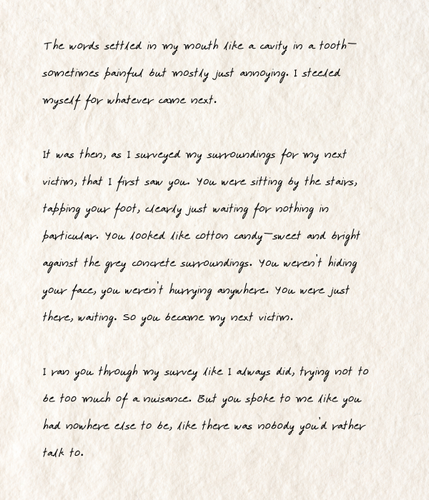 The words settled in my mouth like a cavity in a tooth—
sometimes painful but mostly just annoying. I steeled
myself for whatever came next.
It was then, as I surveyed my surroundings for my next
victim, that I first saw you. You were sitting by the stairs,
tapping your foot, clearly just waiting for nothing in
particular. You looked like cotton candy—sweet and bright
against the grey concrete surroundings. You weren't hiding
your face, you weren't hurrying anywhere. You were just
there, waiting. So you became my next victim.
I ran you through my survey like I always did, trying not to
be too much of a nuisance. But you spoke to me like you
had nowhere else to be, like there was nobody you'd rather
talk to.